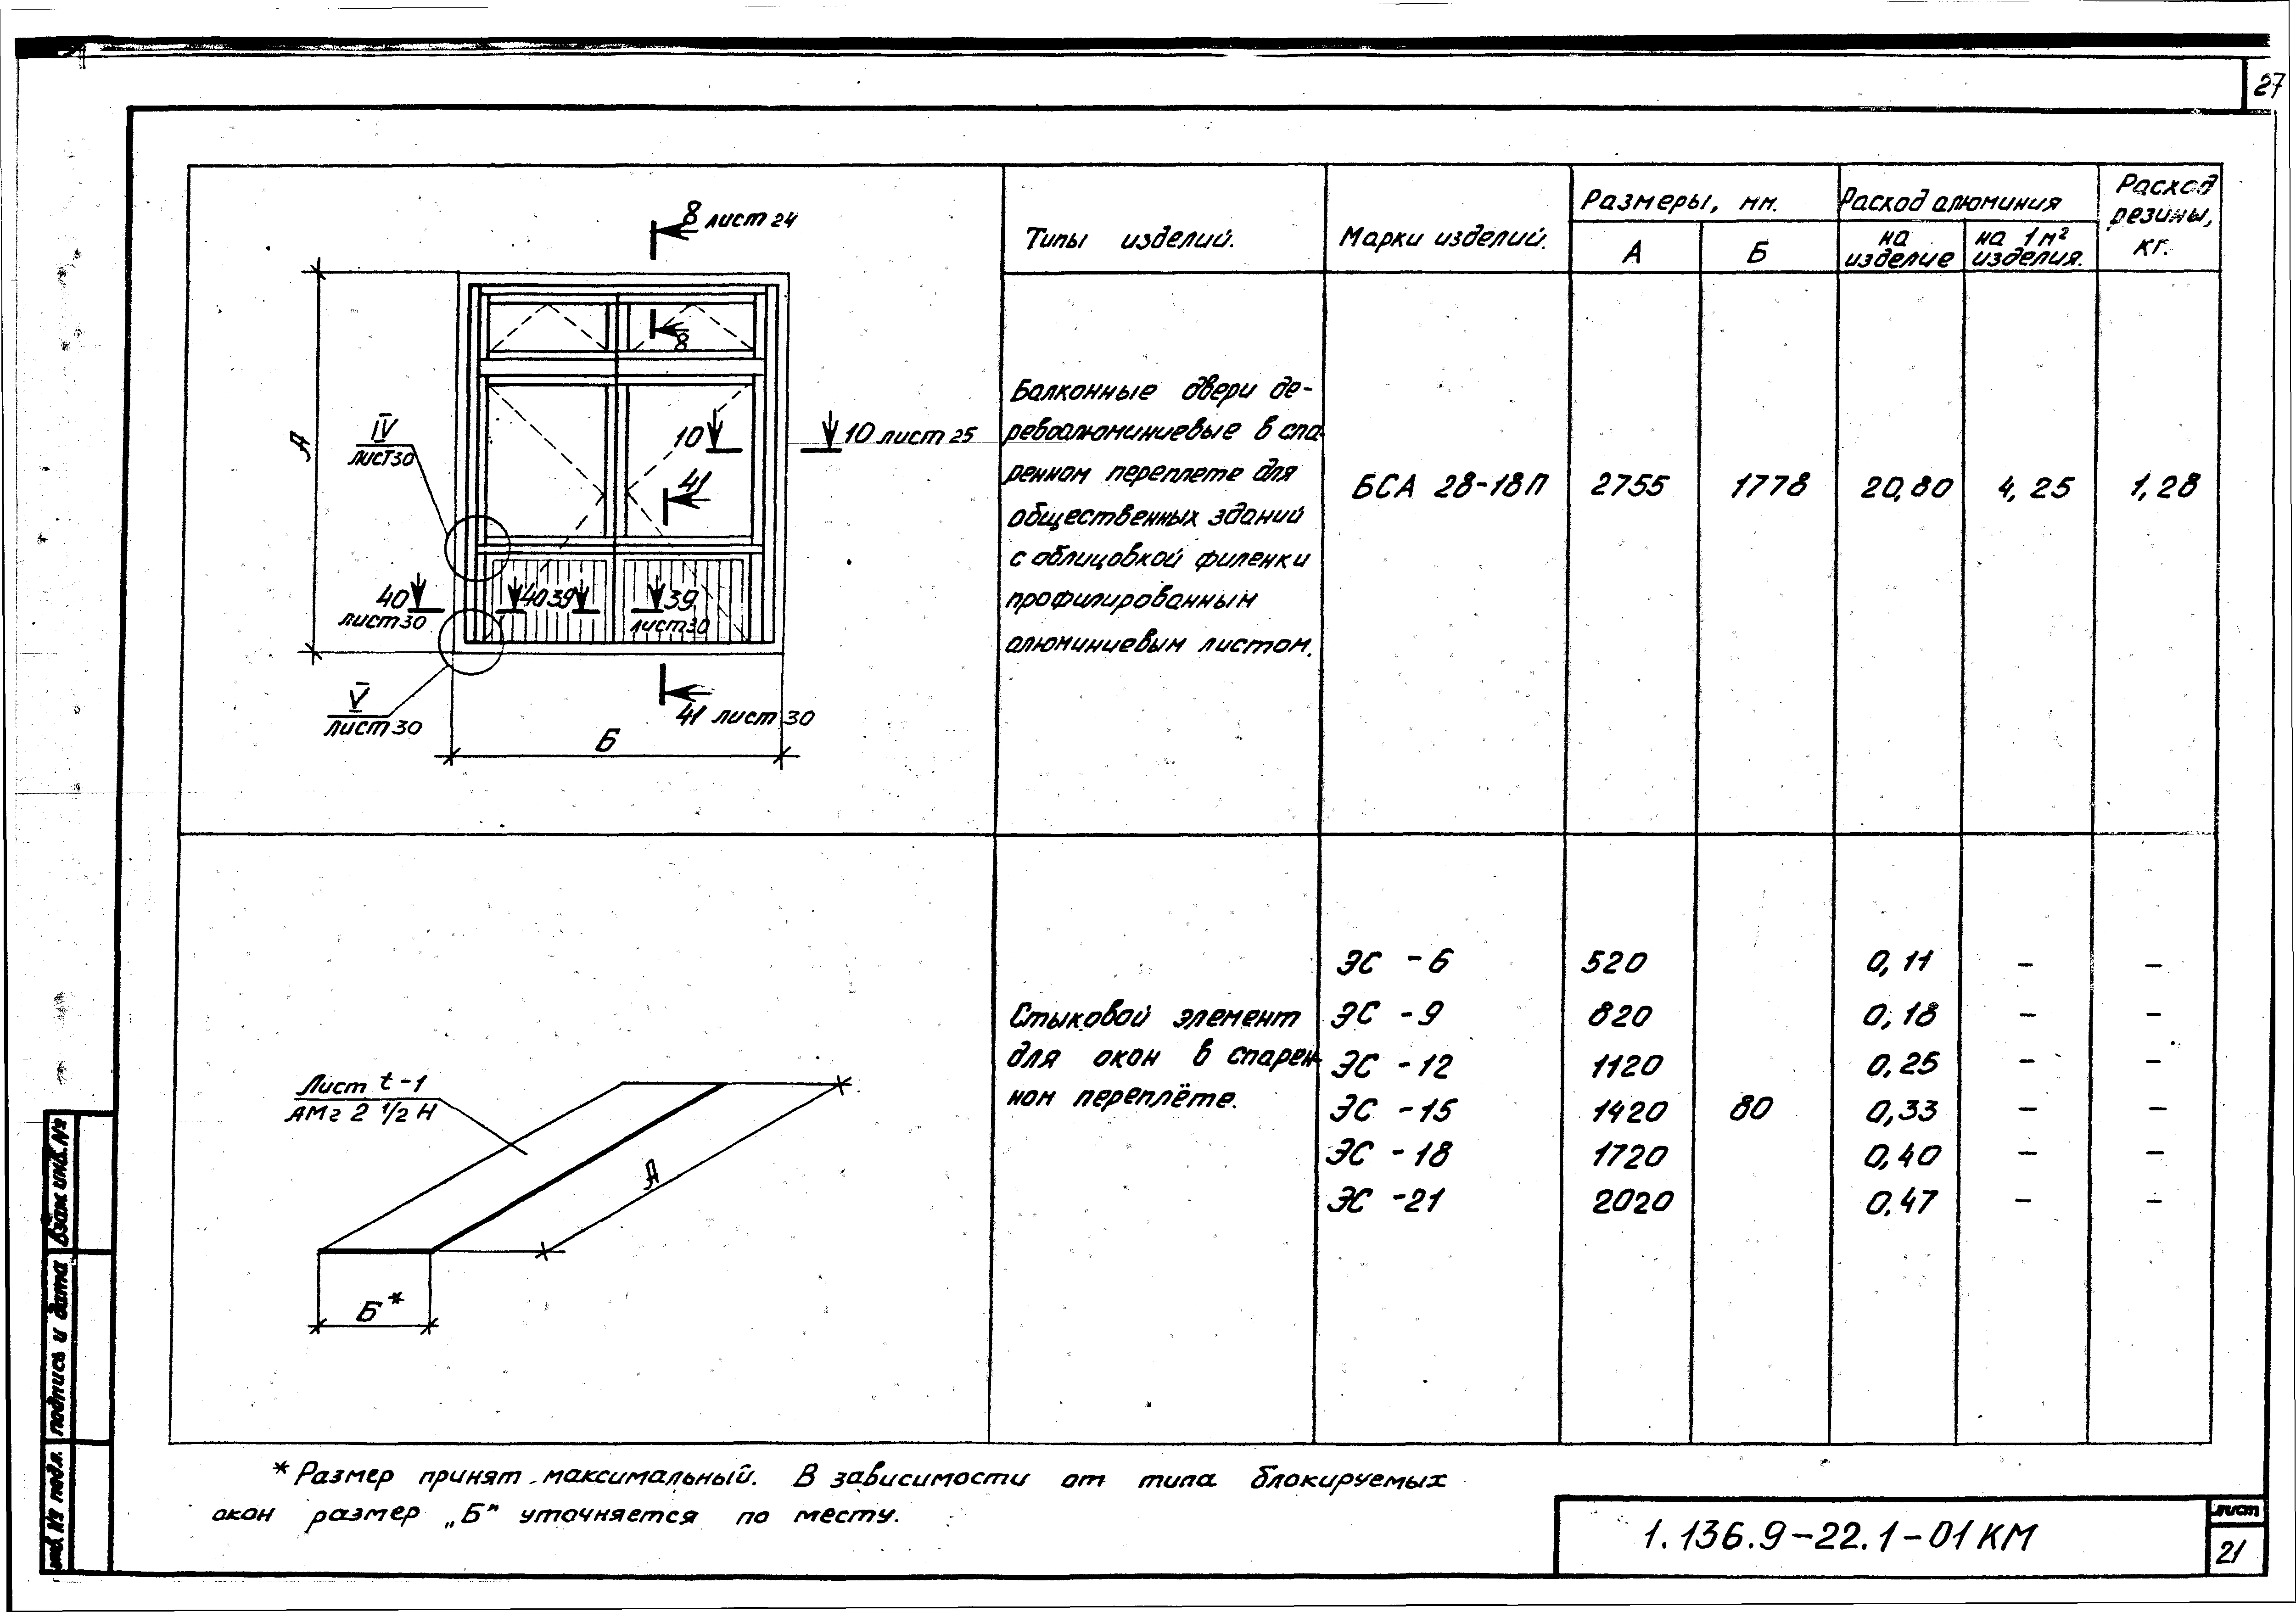 27
Типы изделий.
Марки изделий.
Размеры, мм.
А
Б
Расход алюминия
на изделие
на 1м² изделия.
Расход резины, кг.
8 лист 24
8
А
IV
лист 30
10
10 лист 25
41
40
лист 30
40
39
39
лист 30
V
лист 30
41 лист 30
Б
Балконные двери де-
ревоалюминиевые в спа-
ренном переплете для
общественных зданий
с облицовкой филенки
профилированным
алюминиевым листом.
БСА 28-18П 2755 1778 20,80 4,25 1,28
Лист t-1
АМг 2 1/2 Н
А
Б*
Стыковой элемент
для окон в спарен-
ном переплёте.
ЭС -6 520 0,11 – –
ЭС -9 820 0,18 – –
ЭС -12 1120 0,25 – –
ЭС -15 1420 80 0,33 – –
ЭС -18 1720 0,40 – –
ЭС -21 2020 0,47 – –
* Размер принят максимальный. В зависимости от типа блокируемых
окон размер „Б" уточняется по месту.
1.136.9-22.1-01КМ
лист
21
инв. № подл.
подпись и дата
Взам. инв. №